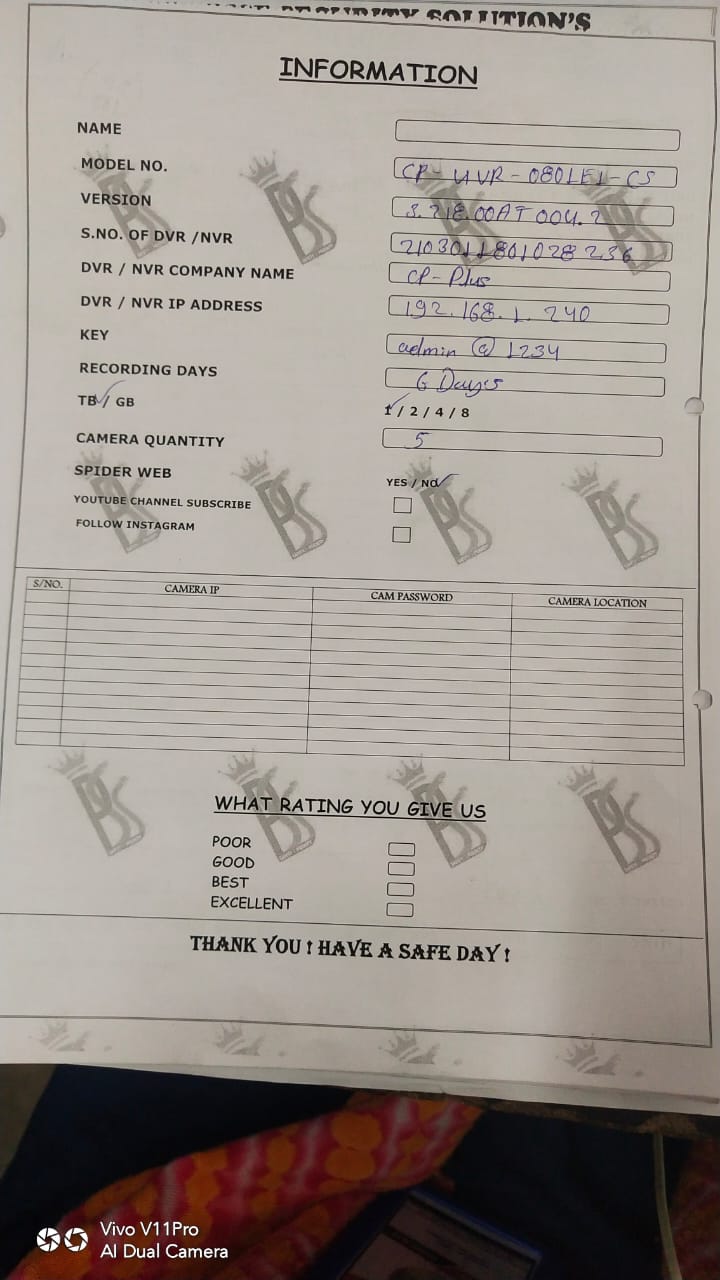 SOLUTION'S
INFORMATION
NAME
MODEL NO. CP-UVR-0801E1-CS
VERSION
S.NO. OF DVR /NVR
DVR / NVR COMPANY NAME CP-Plus
DVR / NVR IP ADDRESS 192.168.1.240
KEY admin @ 1234
RECORDING DAYS 6 Days
TB / GB 1 / 2 / 4 / 8
CAMERA QUANTITY 5
SPIDER WEB YES / NO
YOUTUBE CHANNEL SUBSCRIBE
FOLLOW INSTAGRAM
S/NO. CAMERA IP CAM PASSWORD CAMERA LOCATION
WHAT RATING YOU GIVE US
POOR
GOOD
BEST
EXCELLENT
THANK YOU ! HAVE A SAFE DAY !
Vivo V11Pro
AI Dual Camera